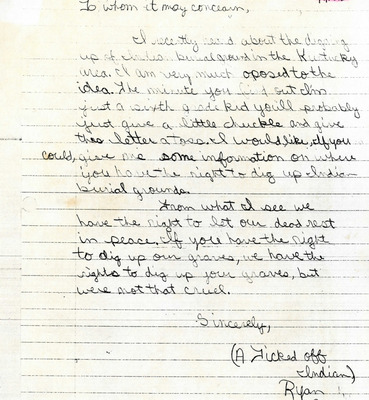 To whom it may concearn,
I recently read about the diging
up of Indian burial ground in the Kentucky
area. I am very much oposed to the
idea. The minute you find out I'm
just a sixth grade kid you'll probably
just give a little chuckle and give
this letter a toss. I would like, if you
could, give me some information on where
you have the right to dig up Indian
burial grounds.
From what I see we
have the right to let our dead rest
in peace. If you have the right
to dig up our graves, we have the
rights to dig up your graves, but
were not that cruel.
Sincerely,
(A Ticked off
Indian)
Ryan